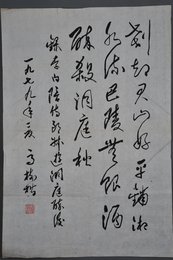 剗却君山好平鋪湘
水流巴陵無限酒
醉殺洞庭秋
録李白陪侍郎叔遊洞庭醉後
一九七九年之夏